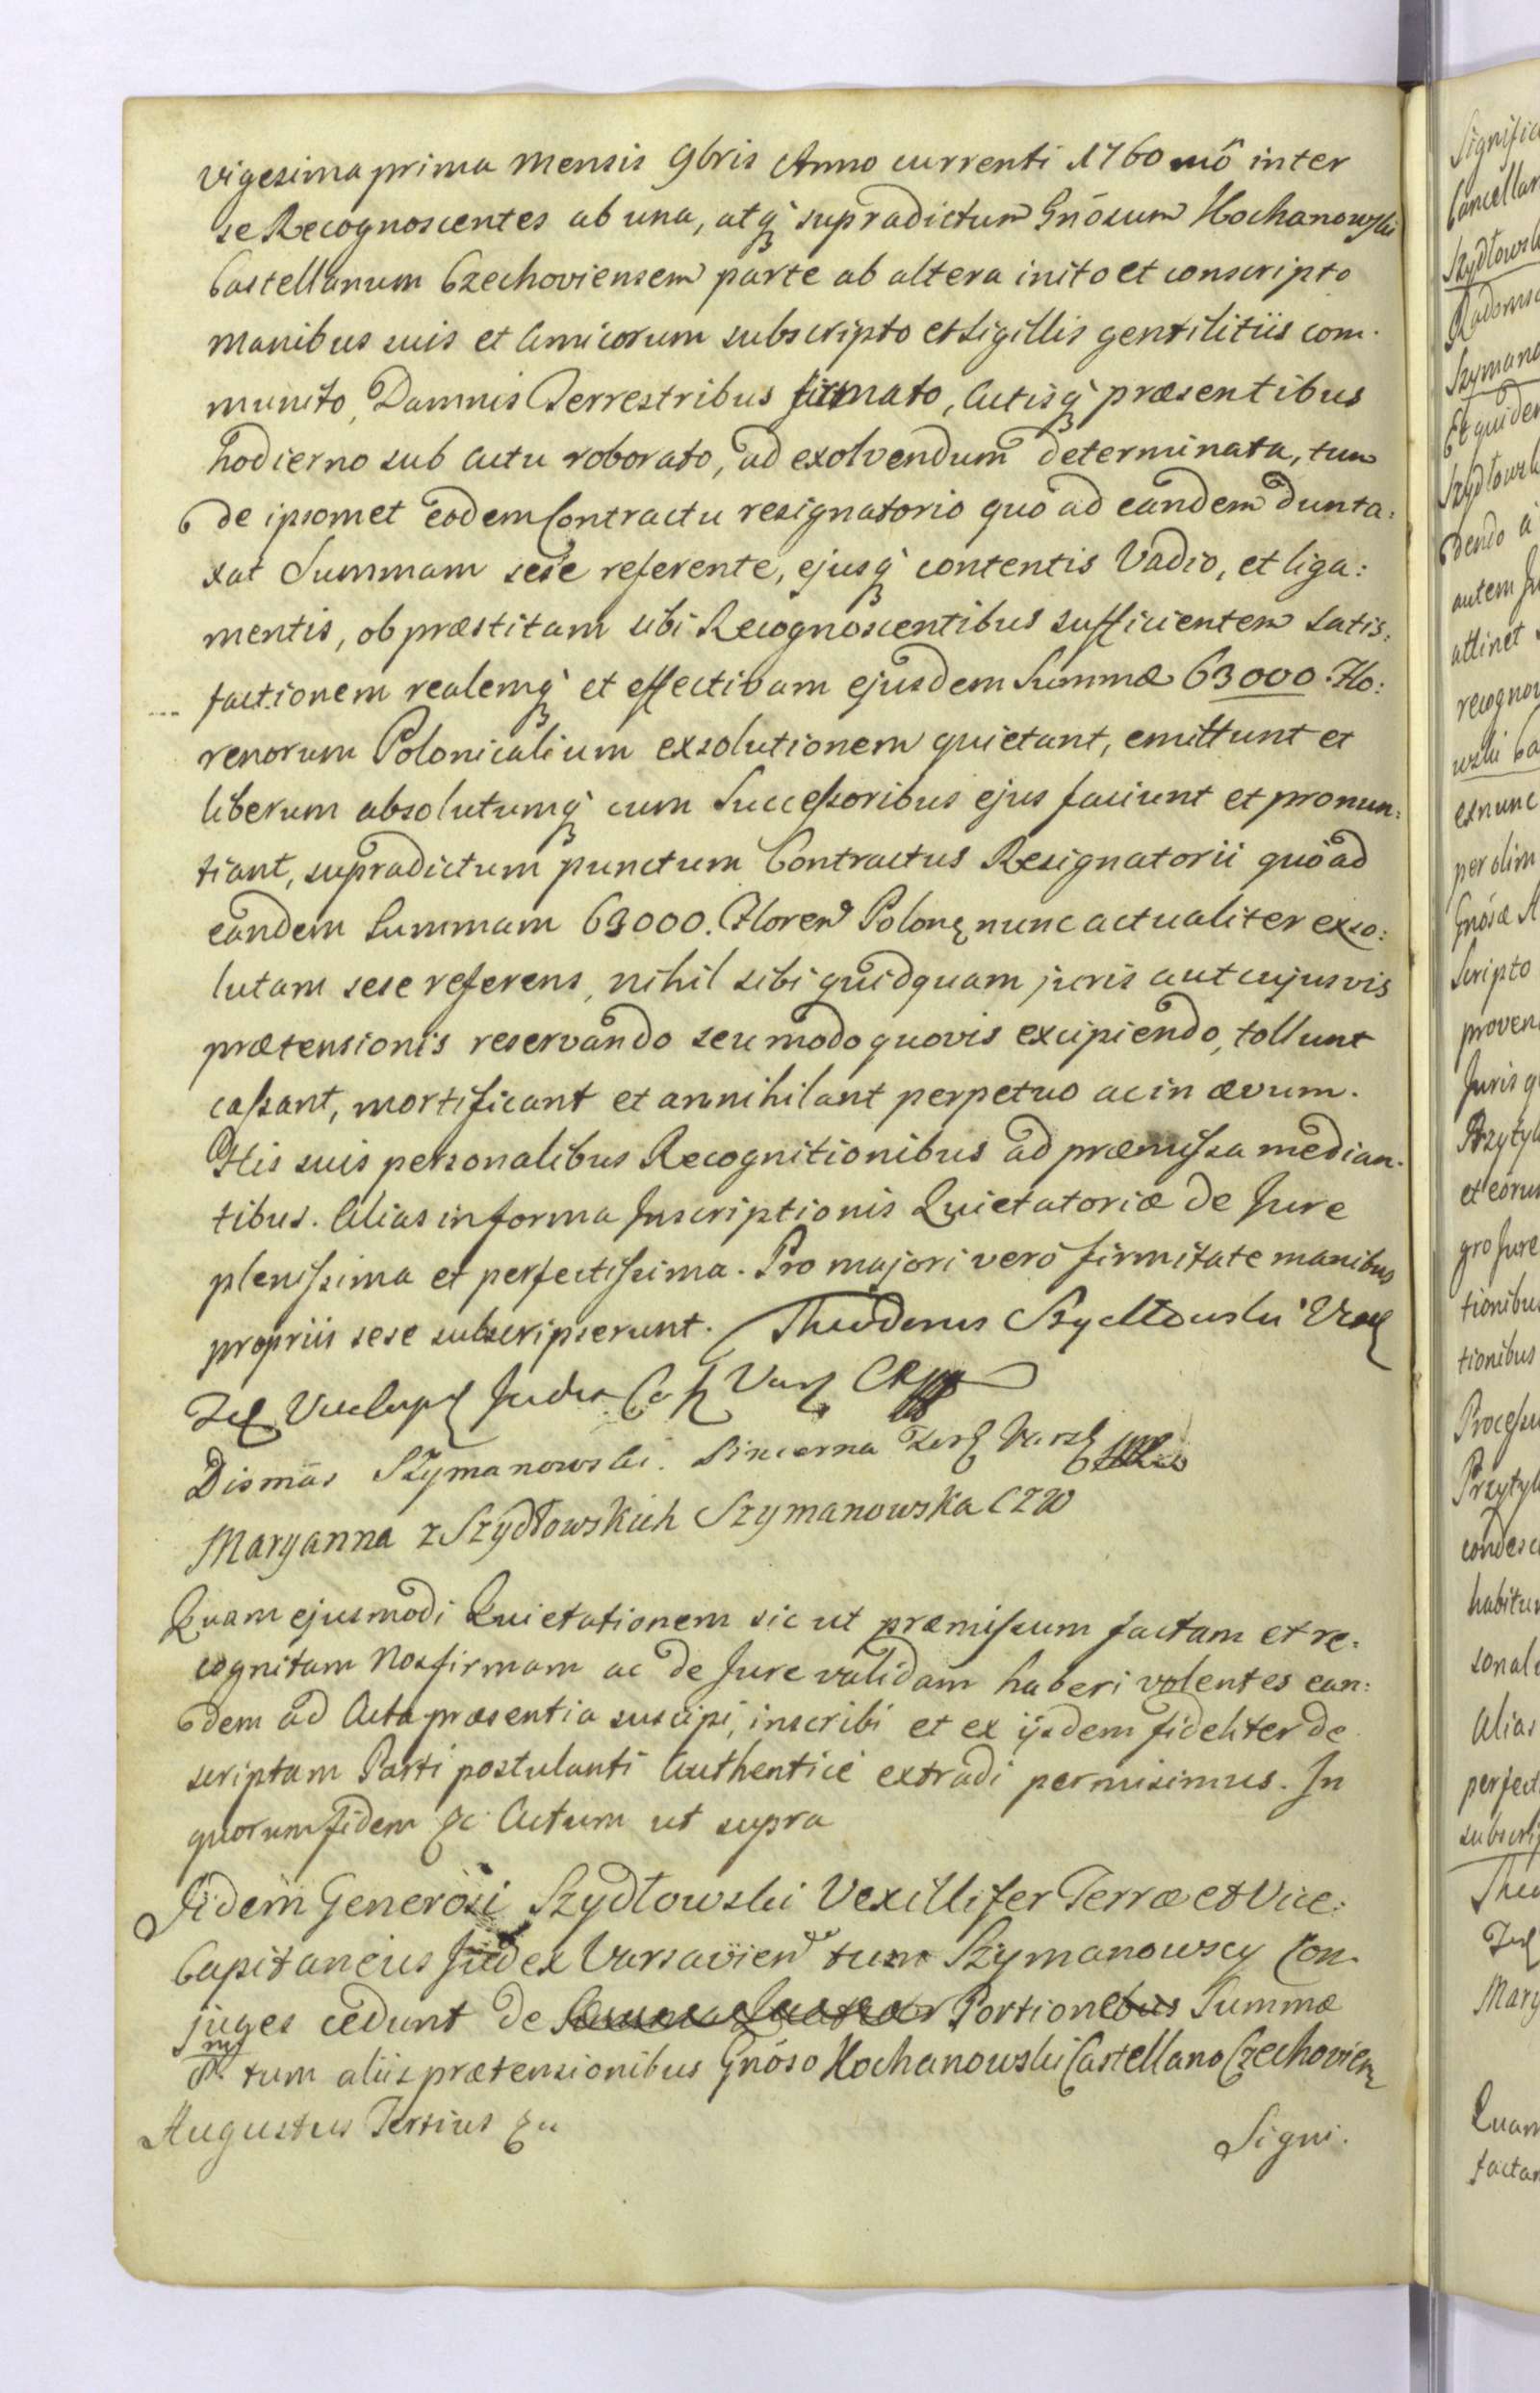 vigesima prima mensis 9bris Anno currenti 1760mô inter
se Recognoscentes ab una, atq́ supradictum Gnõsum Kochanowski
Castellanum Czechoviensem parte ab altera inito et conscripto
manibus suis et Amicorum subscripto et Sigillis gentilitiis com-
munito, Damnis Terrestribus firmato, Actisq́ præsentibus
hodierno sub Actu roborato, ad exolvendum determinata, tum
de ipsomet eodem Contractu resignatorio quo ad eandem dunta:
xat Summam sese referente, ejusq́ contentis Vadio, et liga:
mentis, ob præstitam sibi Recognoscentibus sufficientem satis:
factionem realemq́ et effectivam ejusdem Summæ 63000 Flo:
renorum Polonicalium exsolutionem quietant, emittunt et
liberum absolutumq́ cum Successoribus ejus faciunt et pronun:
tiant, supradictum punctum Contractus Resignatorii quo ad
eandem Summam 63000. Floren Polon nunc actualiter exso:
lutam sese referens, nihil sibi quidquam juris aut cujusvis
prætensionis reservando seu modo quovis excipiendo, tollunt
cassant, mortificant et annihilant perpetuo ac in ævum.
His suis personalibus Recognitionibus ad præmissa median-
tibus. Alias in forma Inscriptionis Quietatoriæ de Jure
plenissima et perfectissima. Pro majori vero firmitate manibus
propriis sese subscripserunt. Theodorus Szydłowski Vex
Ter Vicecap Judex Cas Vars
Dismas Szymanowski. Pincerna Ter Varsz
Maryanna z Szydłowskich Szymanowska CZW
Quam ejusmodi Quietationem sic ut præmissum factam et re-
cognitam Nos firmam ac de Jure validam haberi volentes ean:
dem ad Acta præsentia suscipi, inscribi et ex iisdem fideliter de
scriptam Parti postulanti Authentice extradi permisimus. In
quorum fidem &c Actum ut supra
Iidem Generosi Szydłowski Vexillifer Terræ et Vice:
Capitaneus Judex Varsavien tum Szymanowscy Con-
juges cedunt de Portionebus Summæ
tum aliis prætensionibus Gnõso Kochanowski Castellano Czechovien
Augustus Tertius &c
Signi.